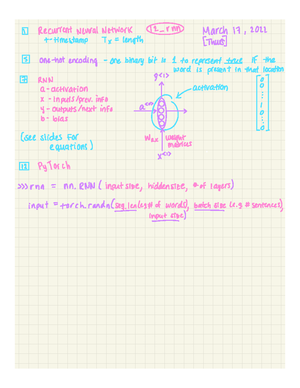 1 Recurrent Neural Network (L_rnn) March 17, 2022
t - timestamp Tx = length [Thurs]
5 one-hot encoding - one binary bit is 1 to represent true if the
word is present in that location
7 RNN
a - activation
x - inputs/prev. info
y - outputs/next info
b - bias
y<t>
activation
a<t>
Wax weight
matrices
x<t>
0
0
1
0
0
(see slides for
equations)
PyTorch
>>> rnn = nn.RNN (input size, hidden size, # of layers)
input = torch.randn(seq_len(eg # of words), batch size (e.g # sentences),
input size)